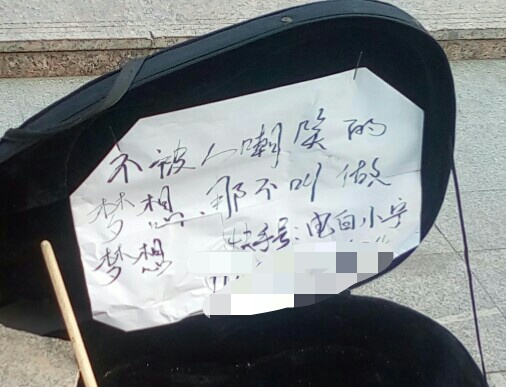 不被人嘲笑的
梦想.那不叫做
梦想 快手号:电白小宁